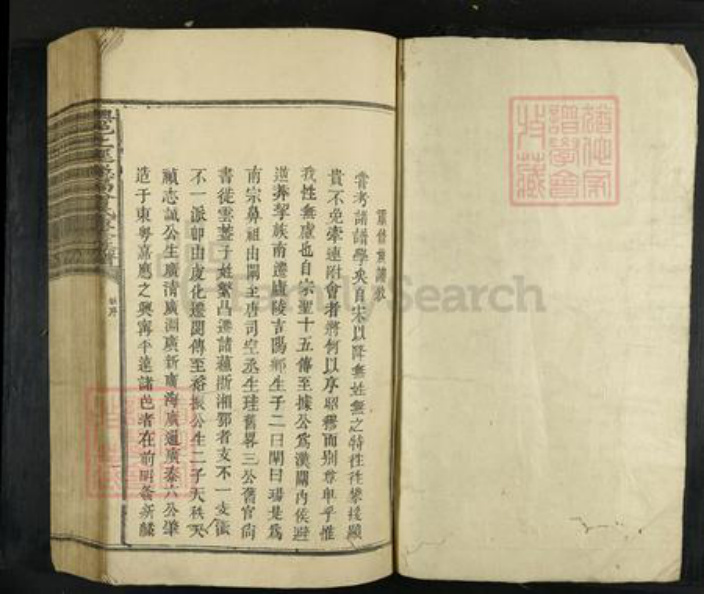 重修族譜敘
嘗考諸譜學矣自宋以降無姓無之特往往攀援顯
貴不免牽連附會者將何以序昭穆而別尊卑乎惟
我姓無慮也自宗聖十五傳至據公為漢關內侯避
莽挈族南遷廬陵吉陽鄉生子二曰闡曰瑒是為
南宗鼻祖由闡至唐司空丞生珪舊畧三公舊官尚
書徒雲蓋子姓繁昌遷諸蘇浙湘鄂者支不一支派
不一派即由虔化遷閩傳至裕振公生二子天秩天
禎志誠公生廣清廣淵廣新廣海廣通廣泰六公肇
造于東粵嘉應之興寧平遠諸邑者在前明
FamilySearch